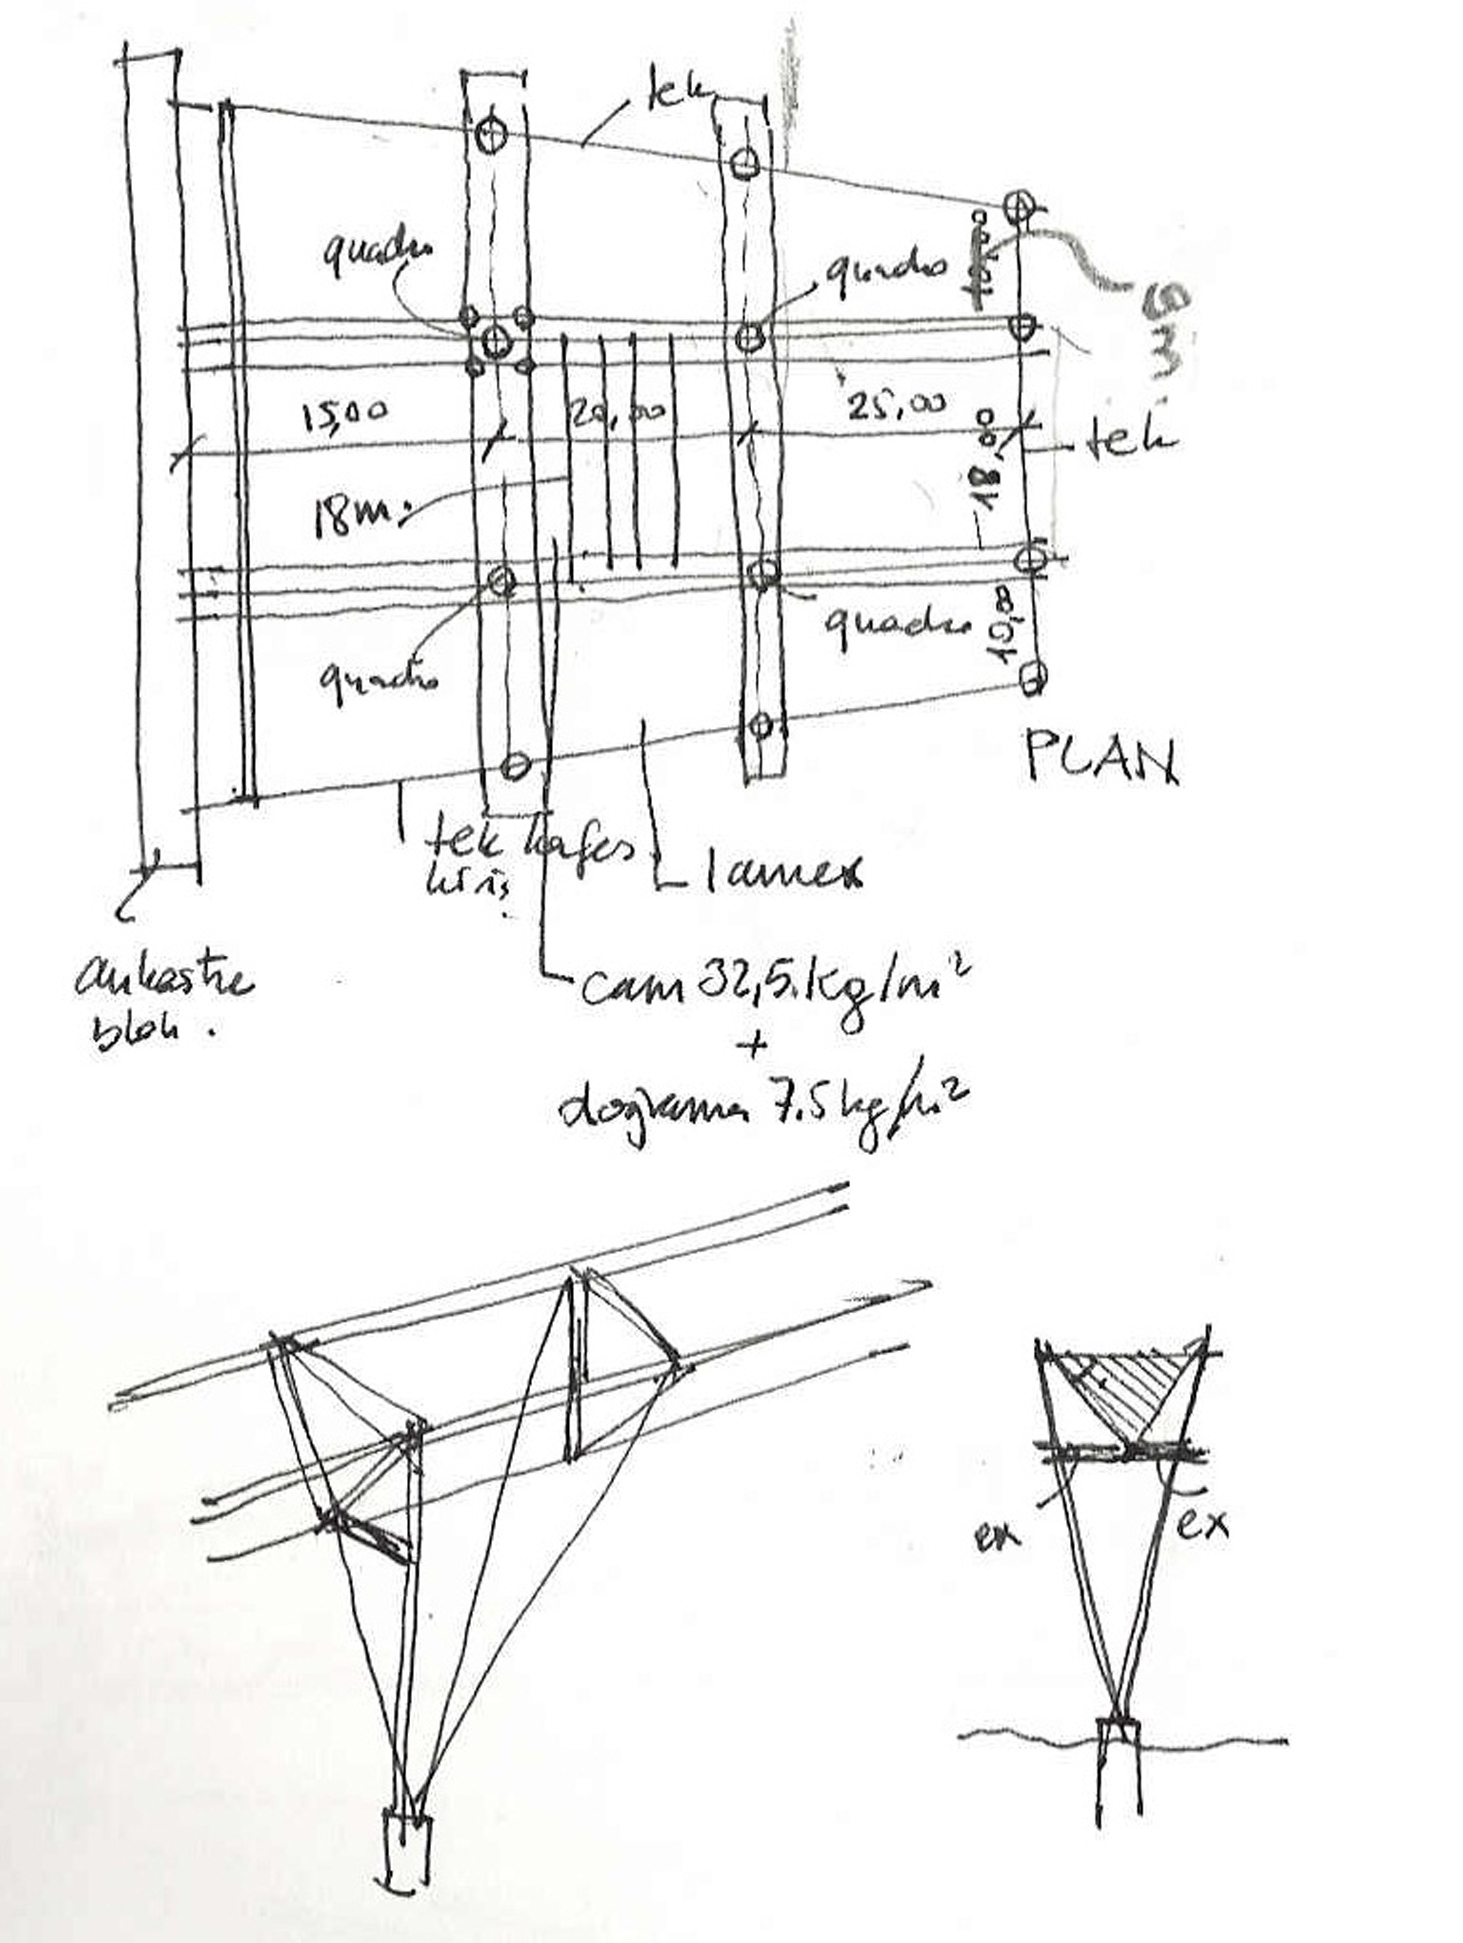 tek
quadro
quadro
10,00
6 m
15,00
20,00
25,00
18,00
tek
18m.
quadro
quadro
10,00
PLAN
tek kafes
kiriş
lamex
ankastre
blok.
cam 32,5.kg/m²
+
doğrama 7.5kg/m²
ex
ex